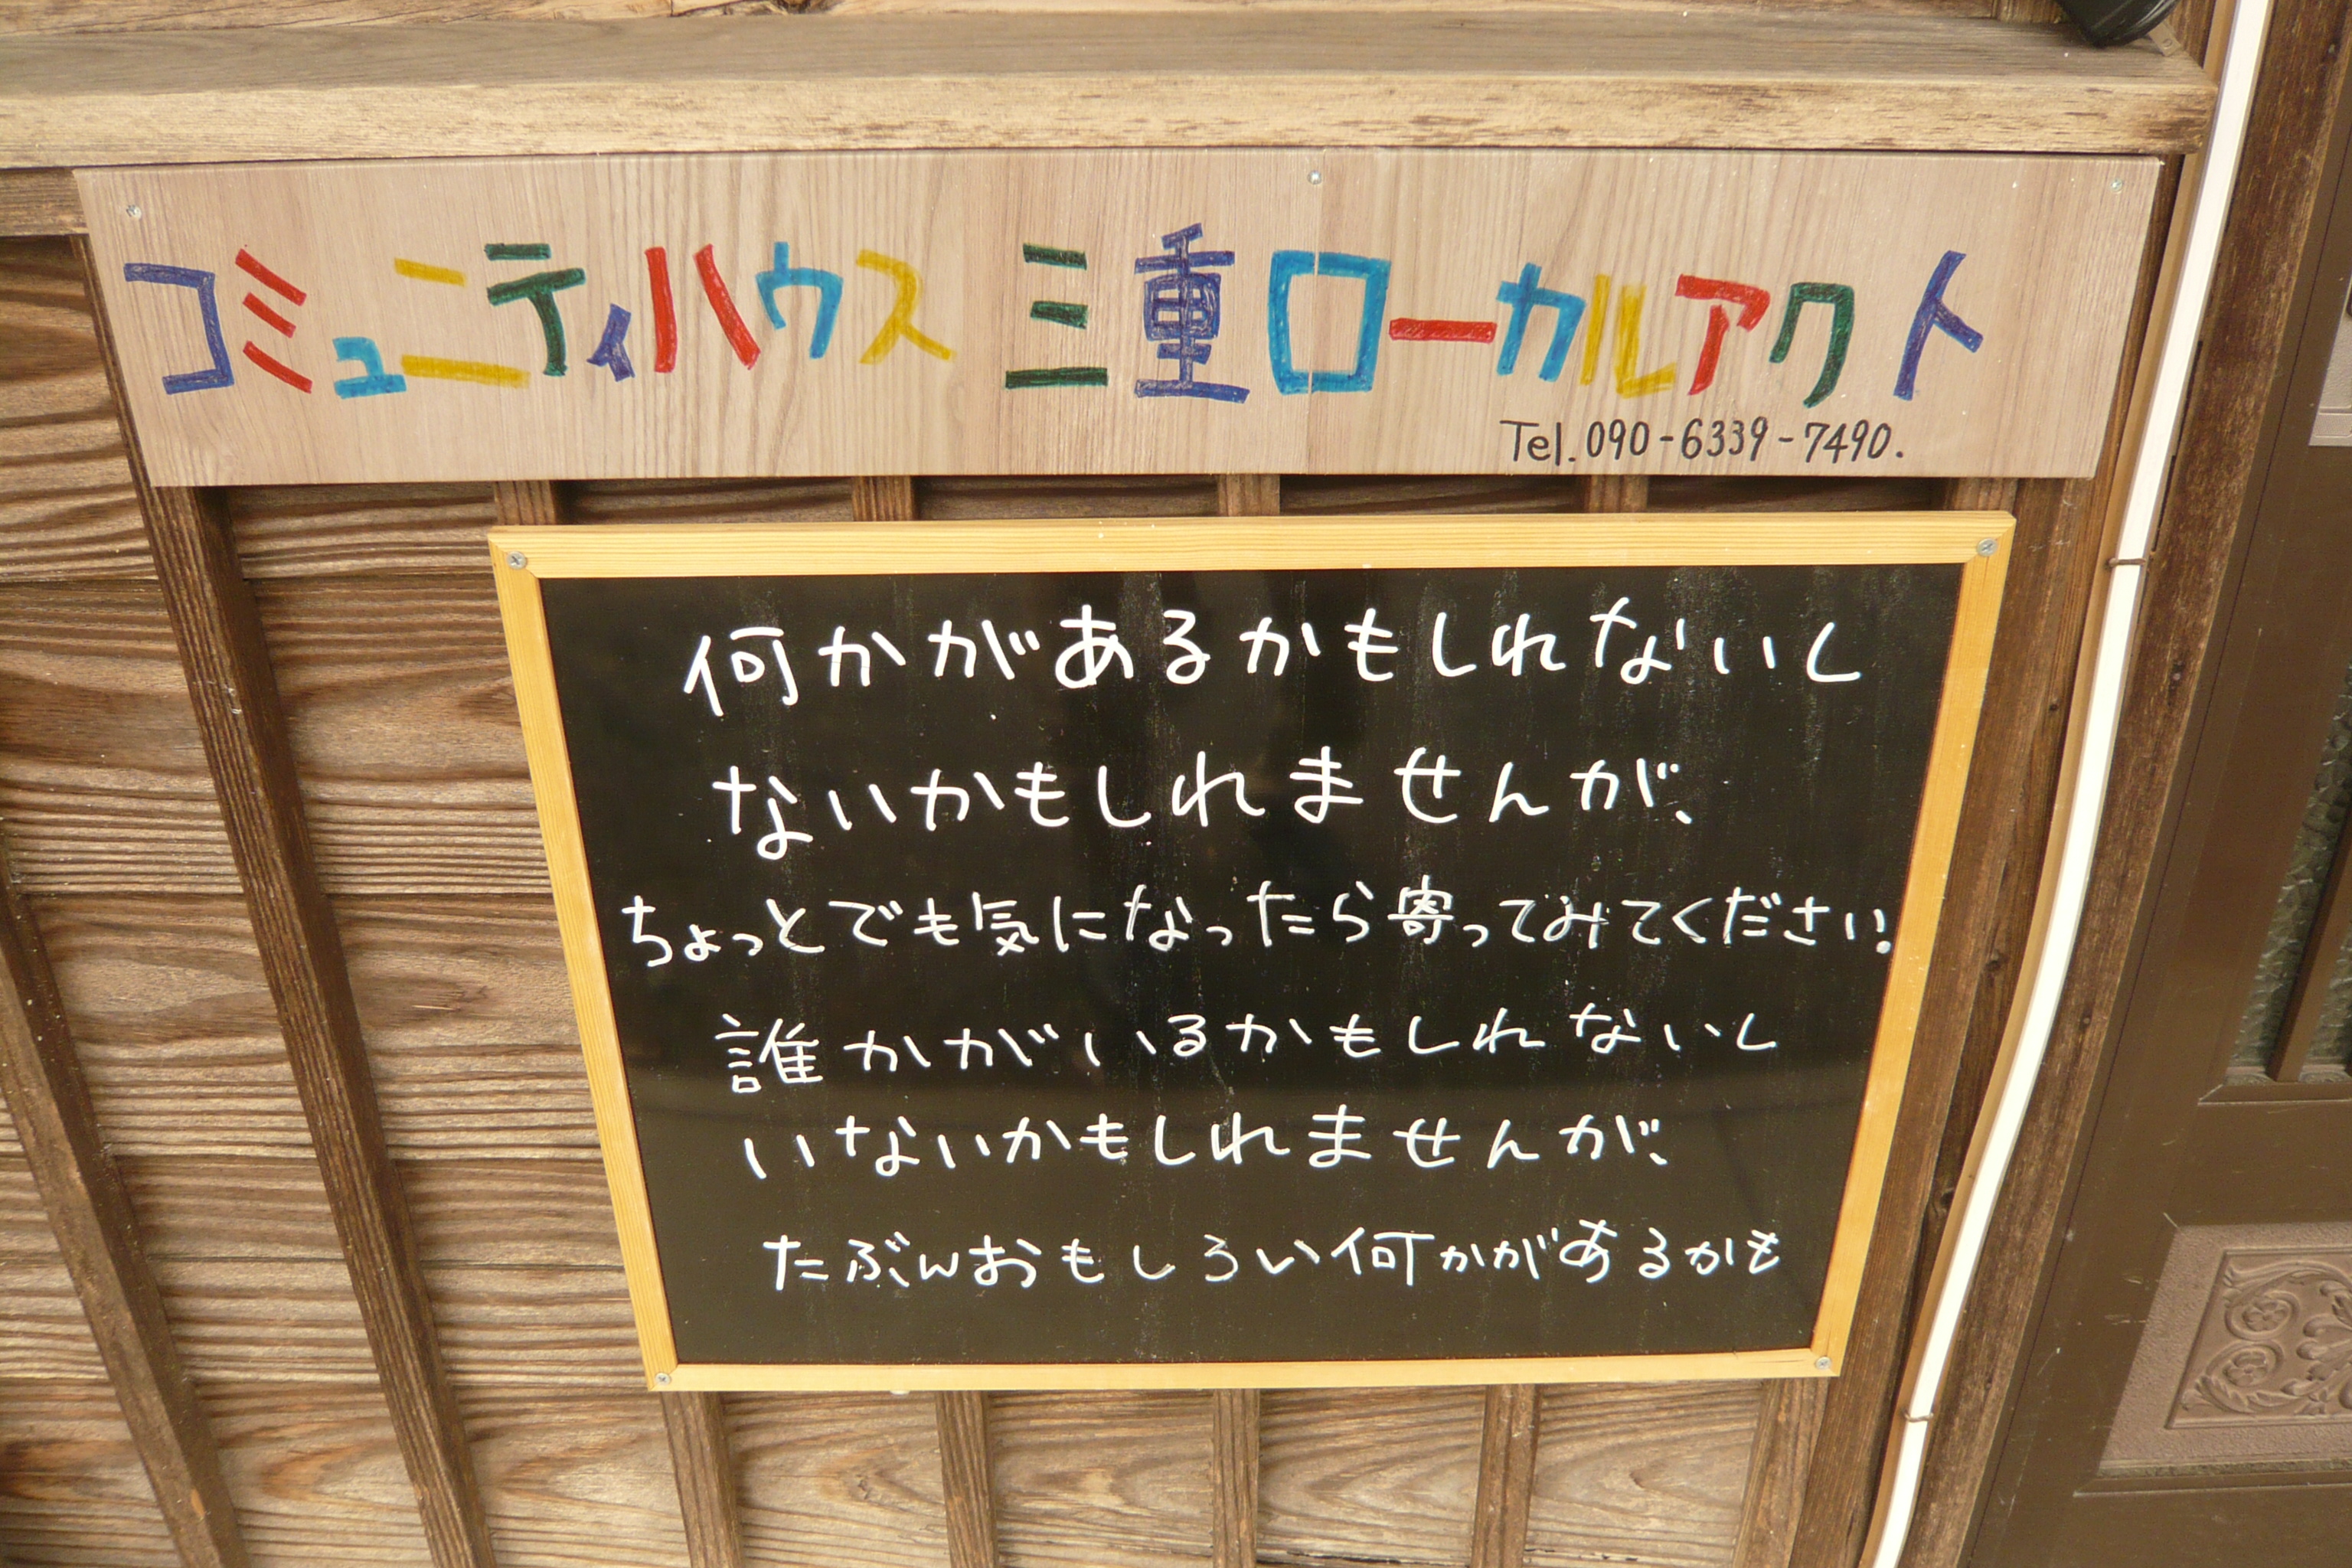 コミュニティハウス 三重ローカルアクト
Tel.090-6339-7490.
何かがあるかもしれないし
ないかもしれませんが、
ちょっとでも気になったら寄ってみてください!
誰かがいるかもしれないし
いないかもしれませんが、
たぶんおもしろい何かがあるかも